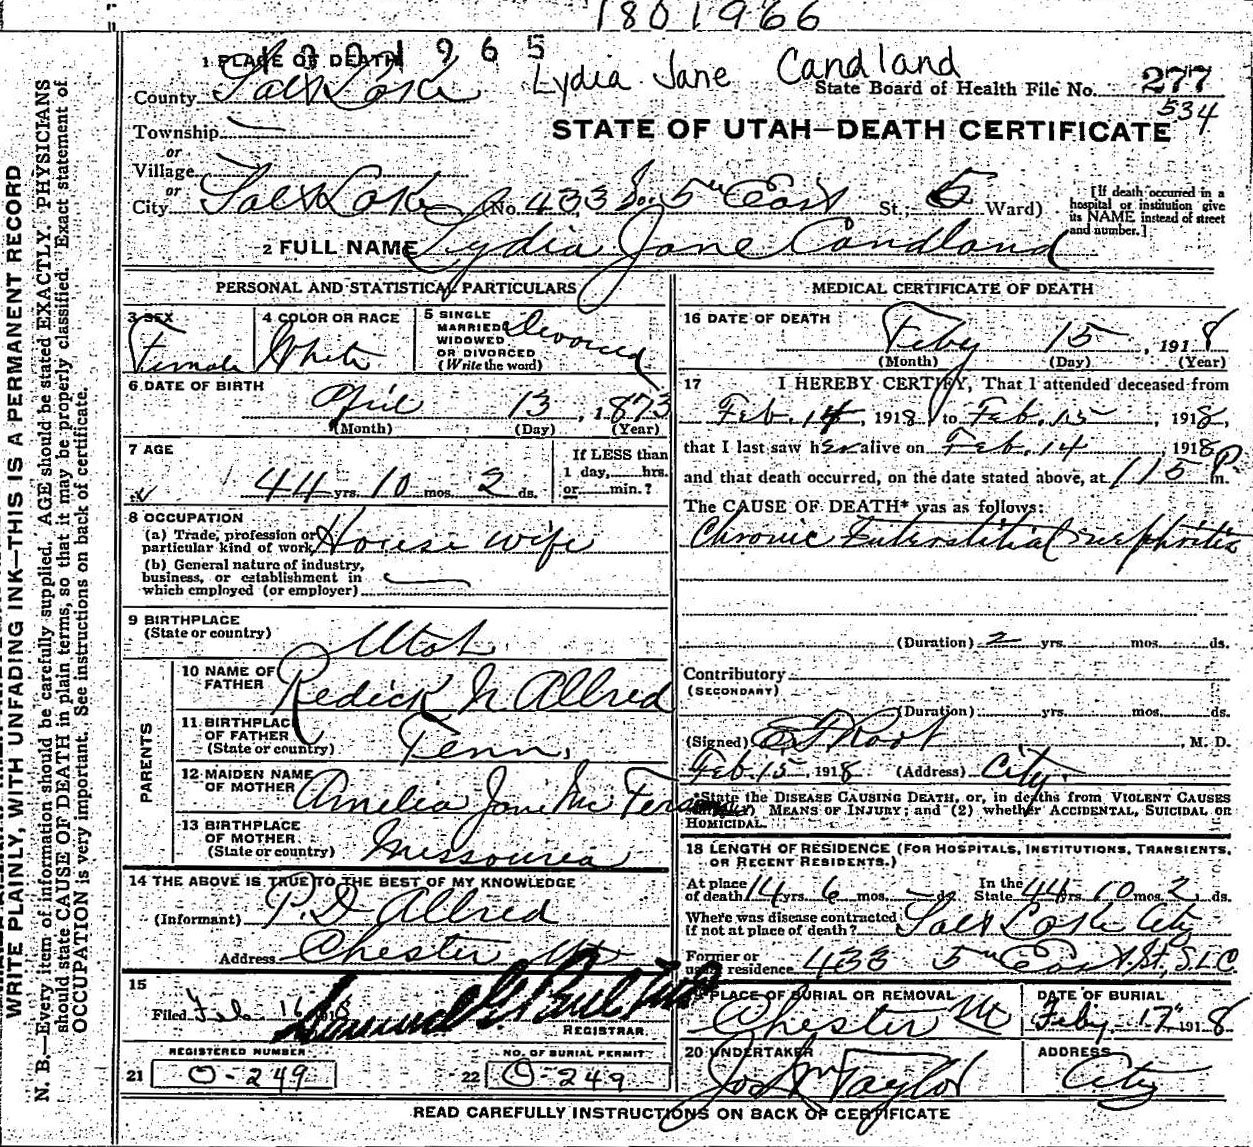 1801966
1801965
Lydia Jane Candland
1 PLACE OF DEATH
County Salt Lake
State Board of Health File No. 277
534
Township —
or
Village
or
City Salt Lake (No. 433 So. 5th East St.; 5 Ward)
STATE OF UTAH—DEATH CERTIFICATE
[If death occurred in a hospital or institution give its NAME instead of street and number.]
2 FULL NAME Lydia Jane Candland
PERSONAL AND STATISTICAL PARTICULARS
3 SEX Female
4 COLOR OR RACE White
5 SINGLE MARRIED WIDOWED OR DIVORCED (Write the word) Divorced
6 DATE OF BIRTH
April 13, 1873
(Month) (Day) (Year)
7 AGE
44 yrs. 10 mos. 2 ds.
If LESS than
1 day, hrs.
or min.?
8 OCCUPATION
(a) Trade, profession or
particular kind of work House wife
(b) General nature of industry,
business, or establishment in
which employed (or employer) —
9 BIRTHPLACE
(State or country) Utah
PARENTS
10 NAME OF FATHER Redick N Allred
11 BIRTHPLACE OF FATHER (State or country) Tenn,
12 MAIDEN NAME OF MOTHER Amelia Jane Mc
13 BIRTHPLACE OF MOTHER (State or country) Missouria
14 THE ABOVE IS TRUE TO THE BEST OF MY KNOWLEDGE
(Informant) P.D Allred
Address Chester Ut
15
Filed Feb 16 1918
REGISTRAR
REGISTERED NUMBER
21 O-249
NO. OF BURIAL PERMIT
22 O-249
MEDICAL CERTIFICATE OF DEATH
16 DATE OF DEATH
Feby 15, 1918
(Month) (Day) (Year)
17 I HEREBY CERTIFY, That I attended deceased from
Feb. 14, 1918, to Feb. 15, 1918,
that I last saw her alive on Feb. 14 1918
and that death occurred, on the date stated above, at 115 P m.
The CAUSE OF DEATH* was as follows:
Chronic Interstitial nephritis
(Duration) 2 yrs. mos. ds.
Contributory
(SECONDARY)
(Duration) yrs. mos. ds.
(Signed) Root, M. D.
Feb. 15, 1918 (Address) City.
*State the DISEASE CAUSING DEATH, or, in deaths from VIOLENT CAUSES
MEANS OF INJURY; and (2) whether ACCIDENTAL, SUICIDAL OR
HOMICIDAL.
18 LENGTH OF RESIDENCE (FOR HOSPITALS, INSTITUTIONS, TRANSIENTS,
OR RECENT RESIDENTS.)
At place of death 14 yrs. 6 mos. — ds. In the State 44 yrs. 10 mos. 2 ds.
Where was disease contracted
if not at place of death? Salt Lake City
Former or
usual residence 433 5th East St, S.L.C.
19 PLACE OF BURIAL OR REMOVAL
Chester Ut
DATE OF BURIAL
Feby 17th 1918
20 UNDERTAKER
Jos Wm Taylor
ADDRESS
City
READ CAREFULLY INSTRUCTIONS ON BACK OF CERTIFICATE
WRITE PLAINLY, WITH UNFADING INK—THIS IS A PERMANENT RECORD
N. B.—Every item of information should be carefully supplied. AGE should be stated EXACTLY. PHYSICIANS
should state CAUSE OF DEATH in plain terms, so that it may be properly classified. Exact statement of
OCCUPATION is very important. See instructions on back of certificate.